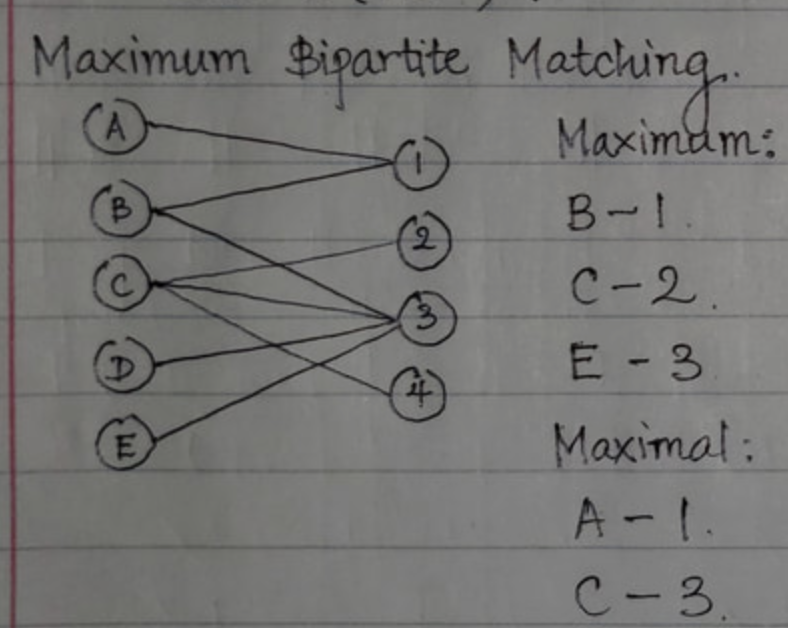 Maximum Bipartite Matching.
A
B
C
D
E
1
2
3
4
Maximum:
B - 1.
C - 2.
E - 3
Maximal:
A - 1.
C - 3.